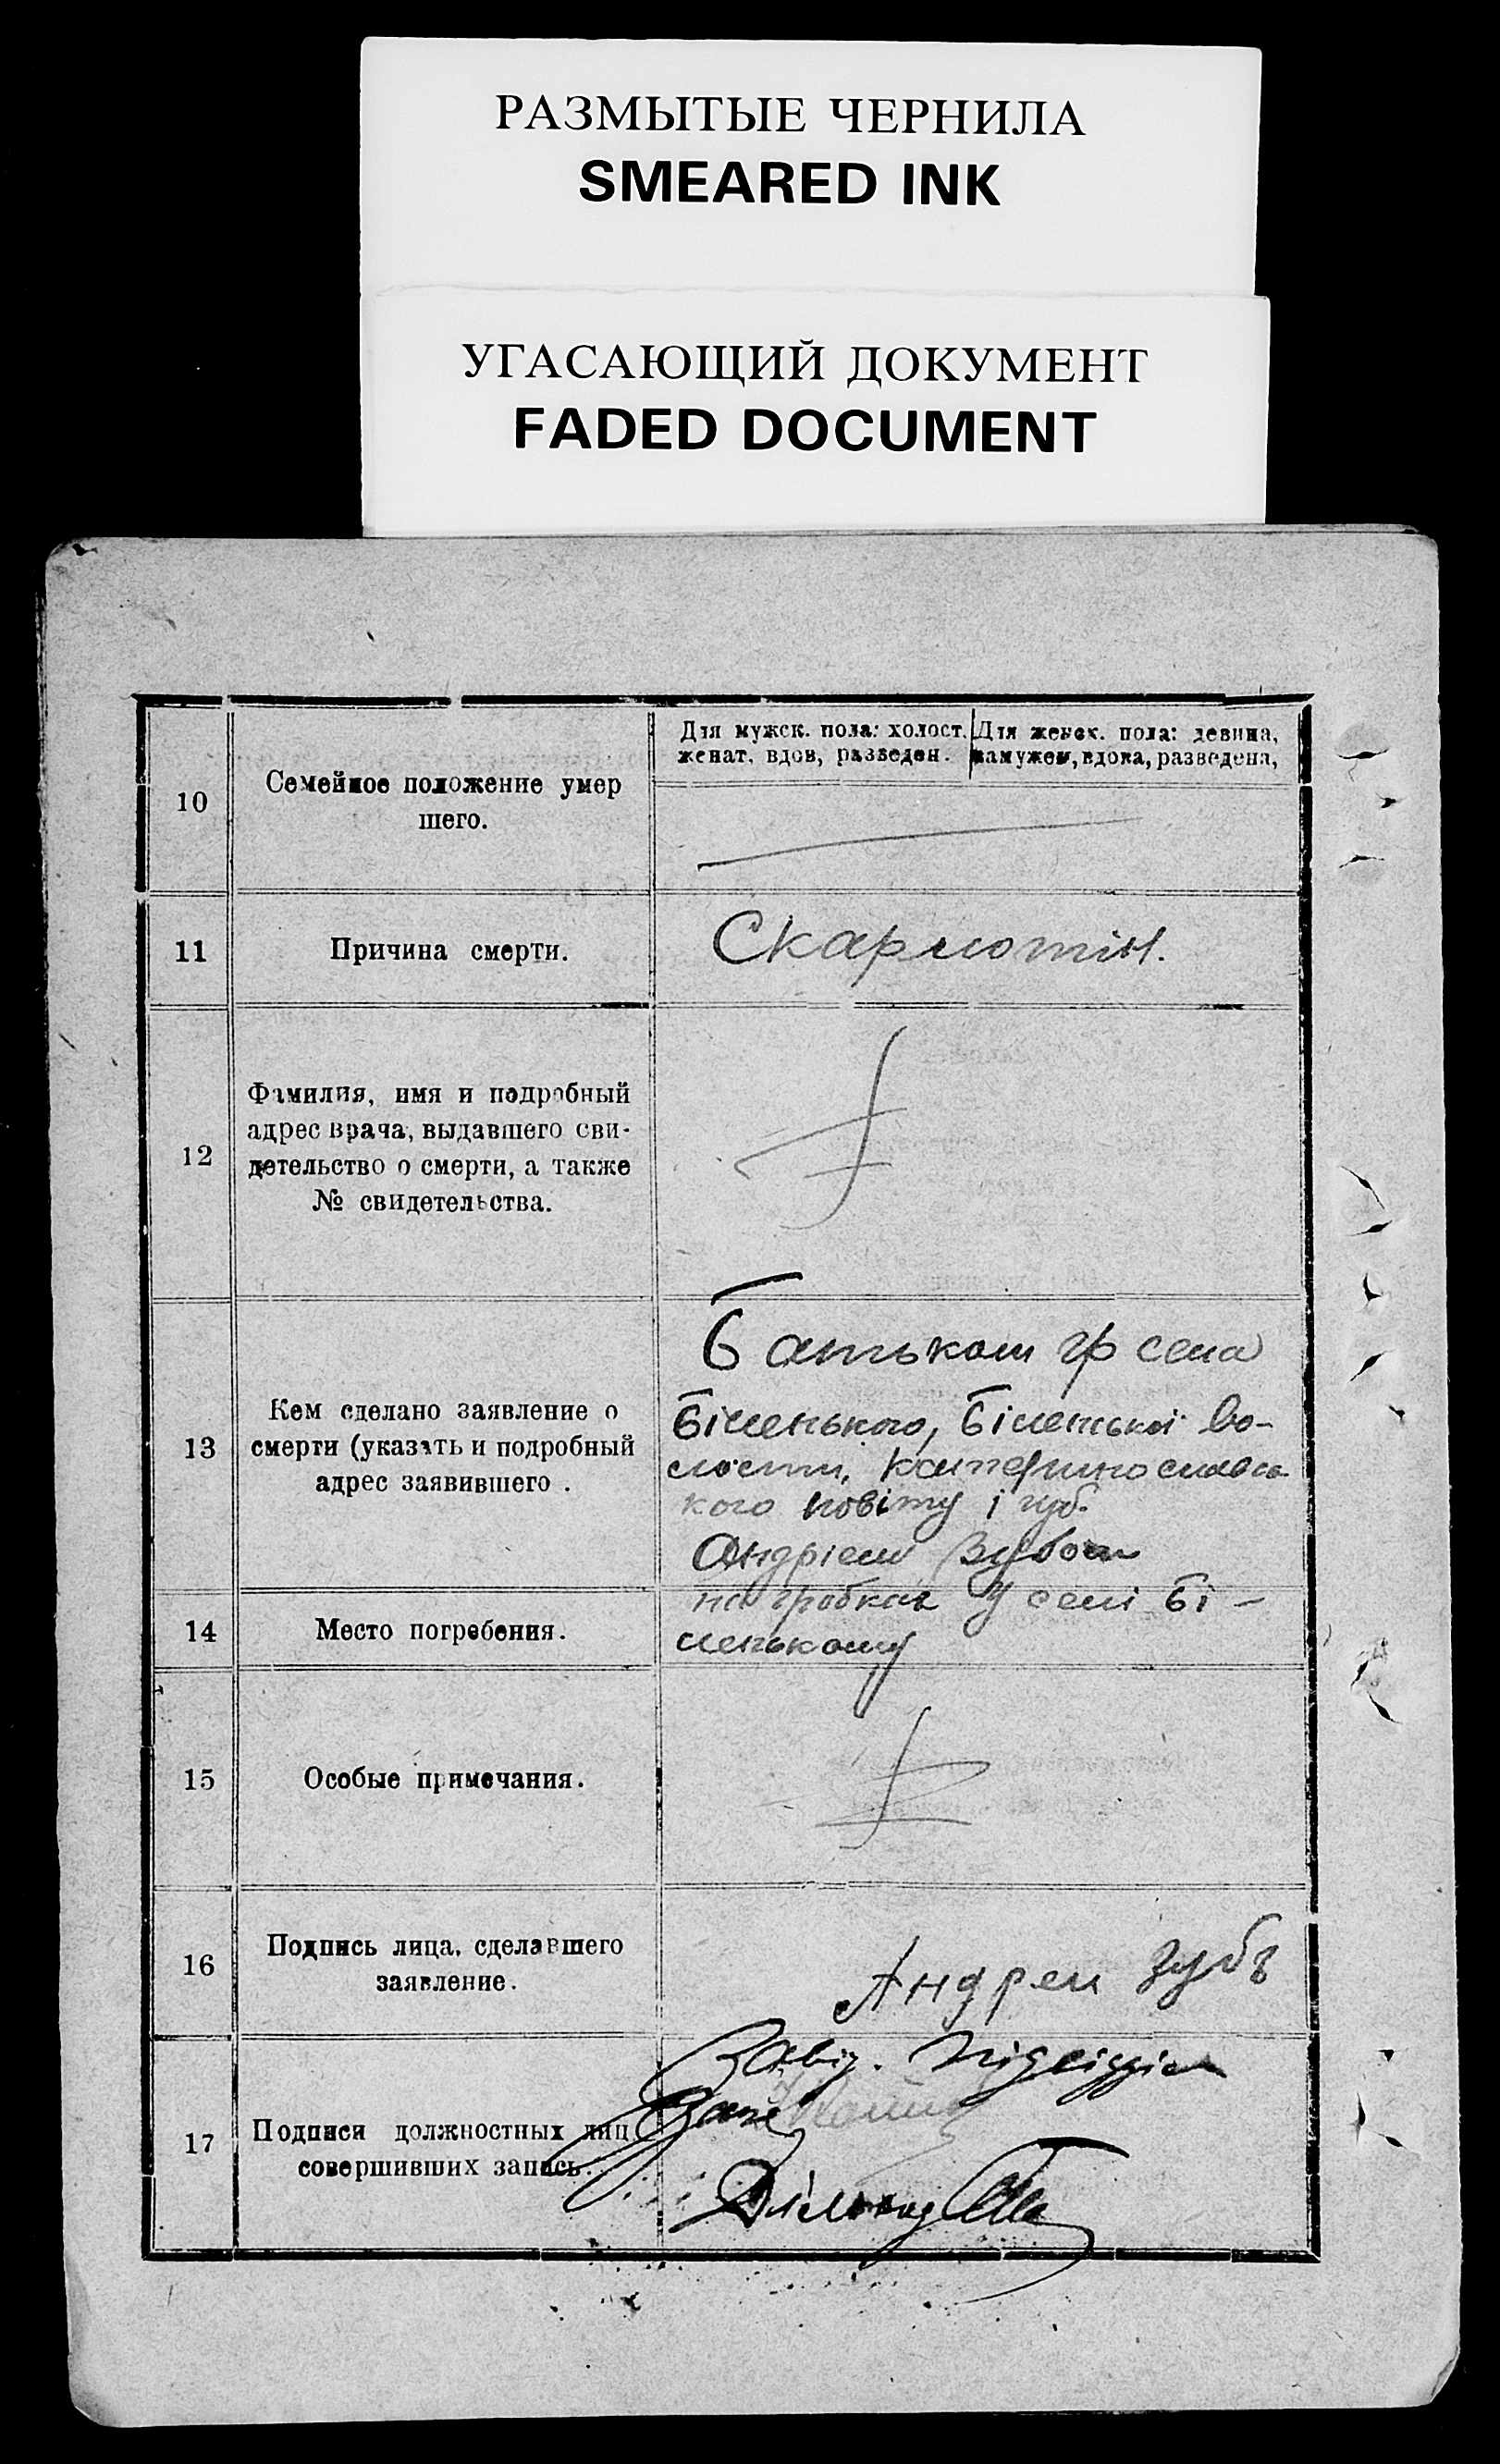 РАЗМЫТЫЕ ЧЕРНИЛА
SMEARED INK
УГАСАЮЩИЙ ДОКУМЕНТ
FADED DOCUMENT
10
Семейное положение умер
шего.
Для мужск. пола: холост.
женат, вдов, разведен.
Для женск. пола: девица,
замужем, вдова, разведена,
11
Причина смерти.
Скарлотін.
12
Фамилия, имя и подробный
адрес врача, выдавшего сви-
детельство о смерти, а также
№ свидетельства.
13
Кем сделано заявление о
смерти (указать и подробный
адрес заявившего .
Батьком гр села
Біленького, Біленької во-
лости, Катеринославсь
кого повіту і губ.
Андрієм Зубом
14
Место погребения.
на гробках у селі Бі-
ленькому
15
Особые примечания.
16
Подпись лица, сделавшего
заявление.
Андреи Зубъ
17
Подписи должностных лиц
совершивших запись.
Завід.
Діловод